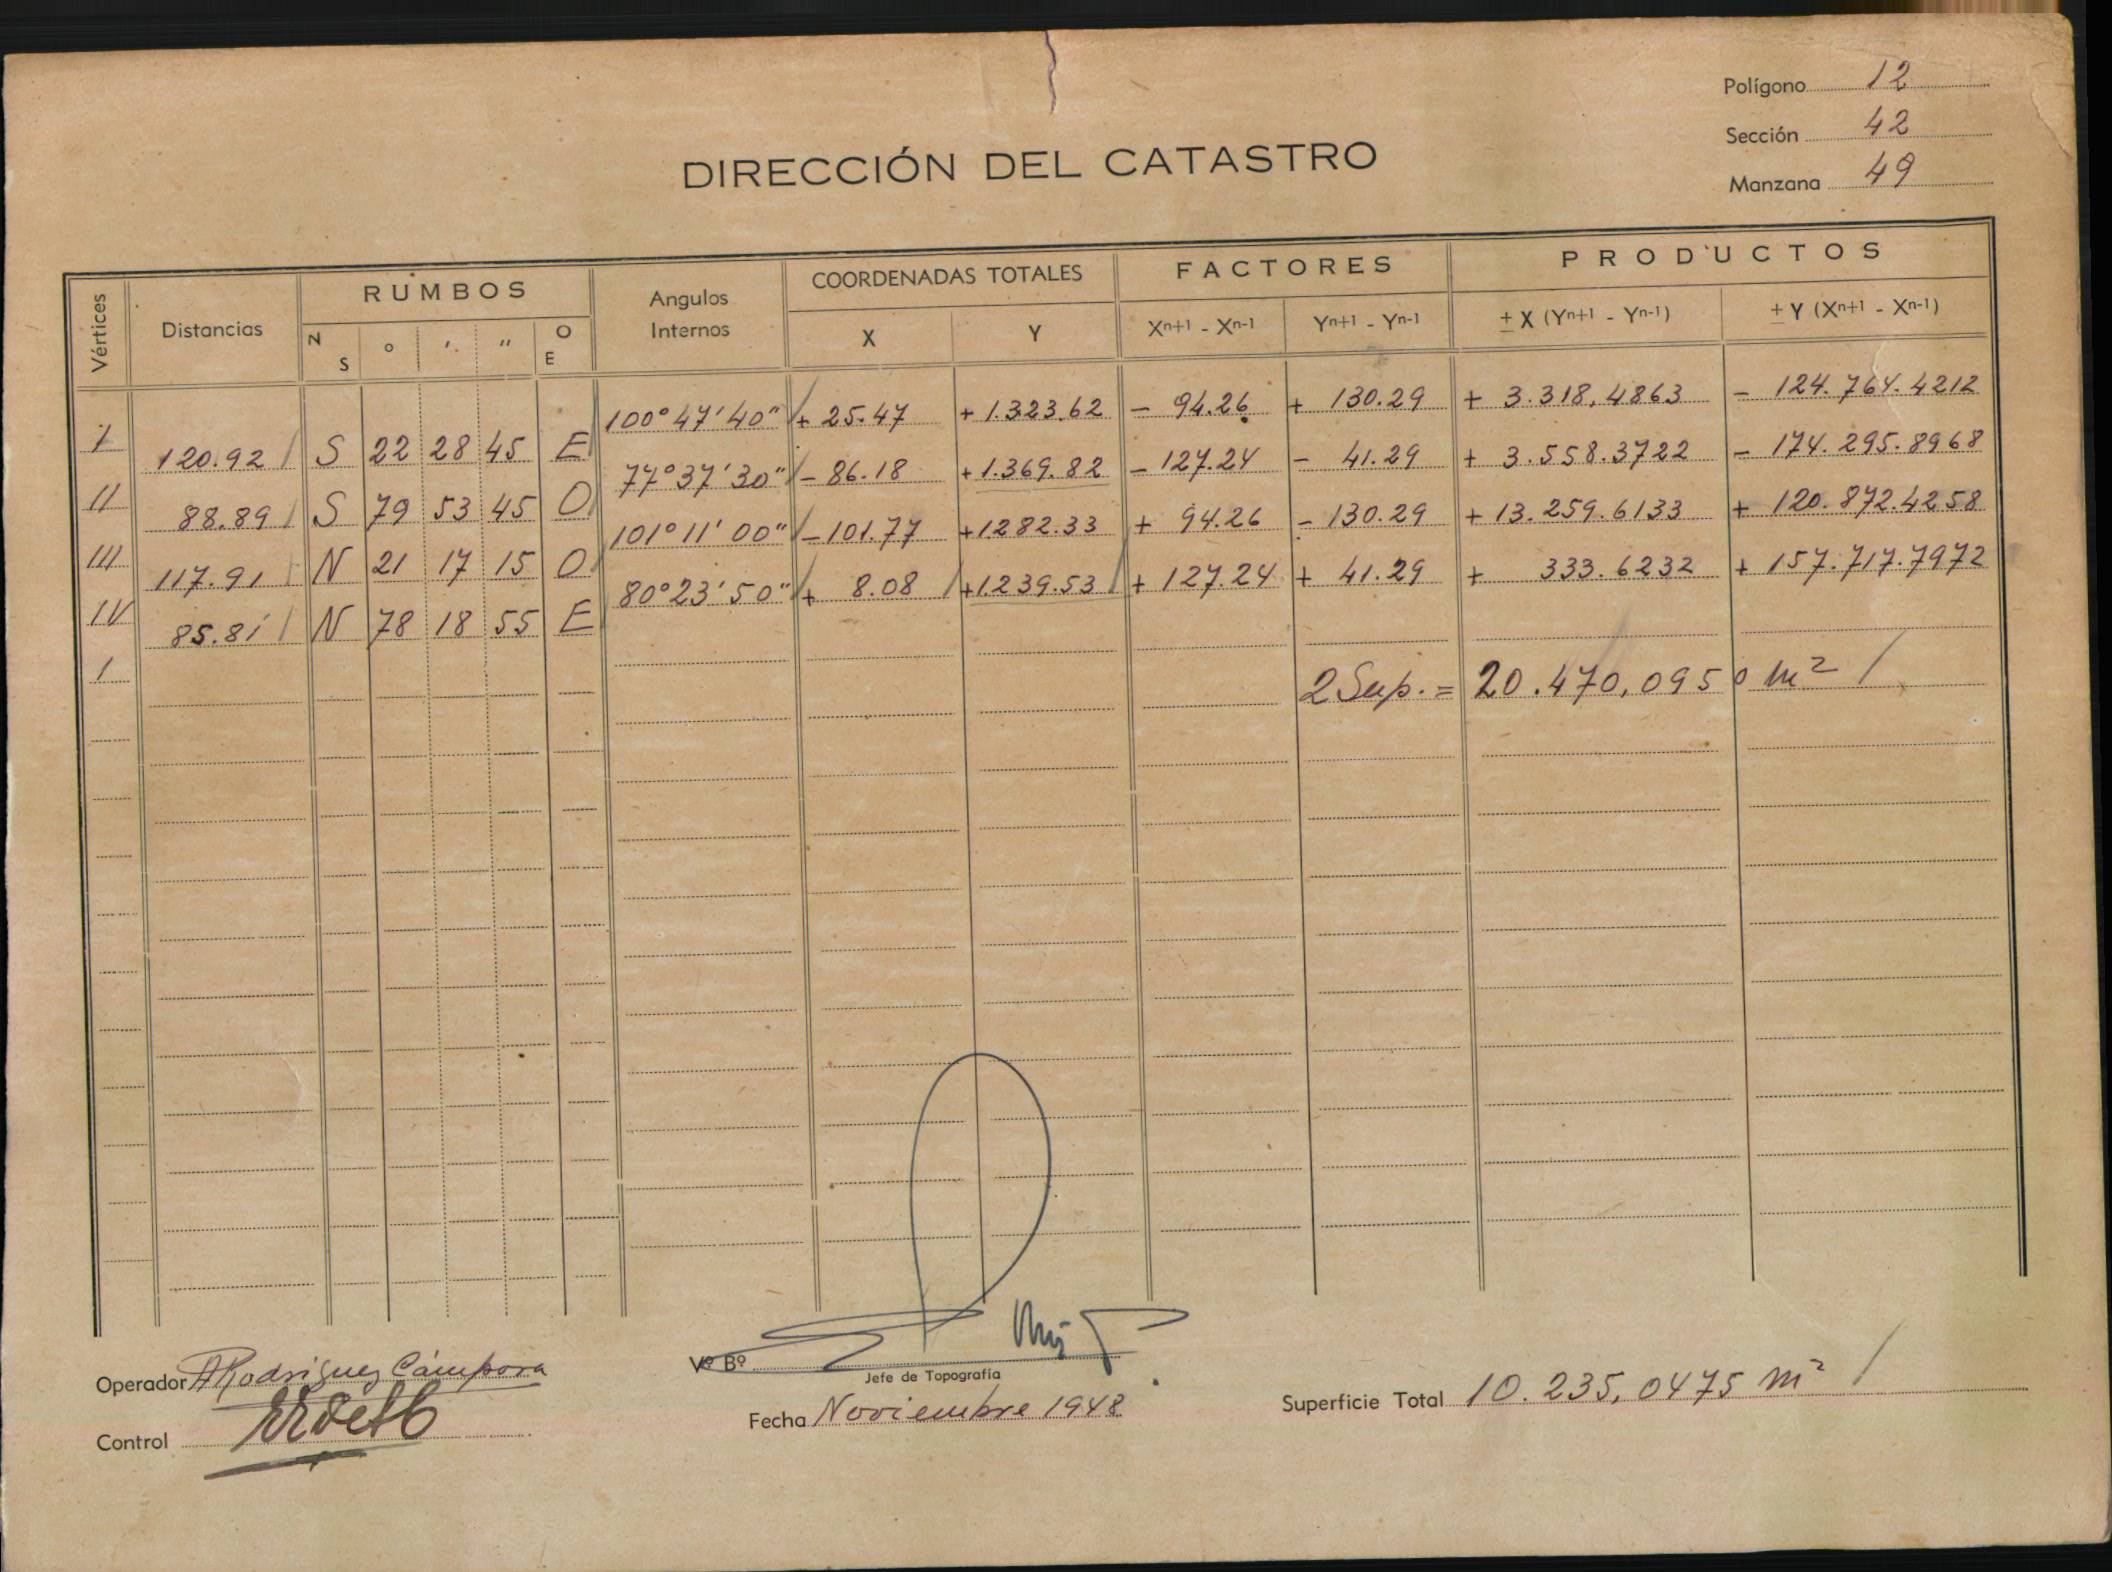 Polígono 12
Sección 42
Manzana 49
DIRECCIÓN DEL CATASTRO
Vértices Distancias RUMBOS Angulos Internos COORDENADAS TOTALES FACTORES PRODUCTOS
N S ° ' " O E X Y Xn+1 - Xn-1 Yn+1 - Yn-1 ± X (Yn+1 - Yn-1) ± Y (Xn+1 - Xn-1)
100°47'40" + 25.47 + 1.323.62 - 94.26 + 130.29 + 3.318,4863 - 124.764.4212
I 120.92 S 22 28 45 E
77°37'30" - 86.18 + 1.369.82 - 127.24 - 41.29 + 3.558.3722 - 174.295.8968
II 88.89 S 79 53 45 O
101°11'00" - 101.77 + 1282.33 + 94.26 - 130.29 + 13.259.6133 + 120.872.4258
III 117.91 N 21 17 15 O
80°23'50" + 8.08 + 1.239.53 + 127.24 + 41.29 + 333.6232 + 157.717.7972
IV 85.81 N 78 18 55 E
I
2 Sup. = 20.470,0950 m²
Operador A Rodriguez Cámpora
Vº Bº
Jefe de Topografía
Control
Fecha Noviembre 1948
Superficie Total 10.235,0475 m²